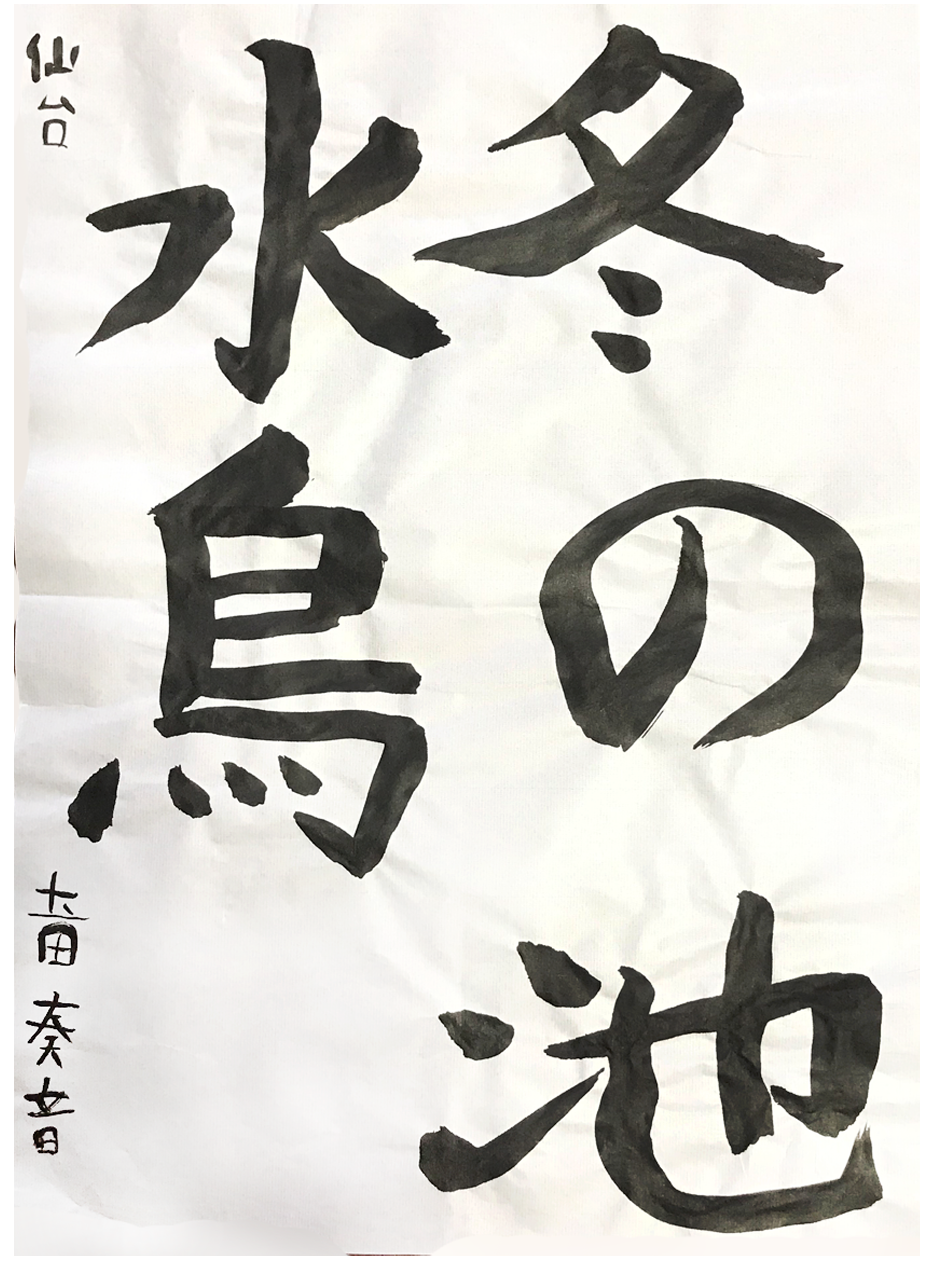 冬の池
水鳥
仙台 奏音